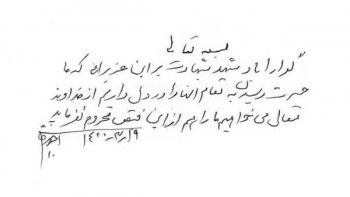 بسمه تعالی
گوارا باد شهد شهادت بر این عزیزان که ما
حسرت رسیدن به مقام آنها را در دل داریم از خداوند
متعال می‌خواهیم ما را هم از این فیض محروم نفرماید
۱۴۲۰/۳/۱۹